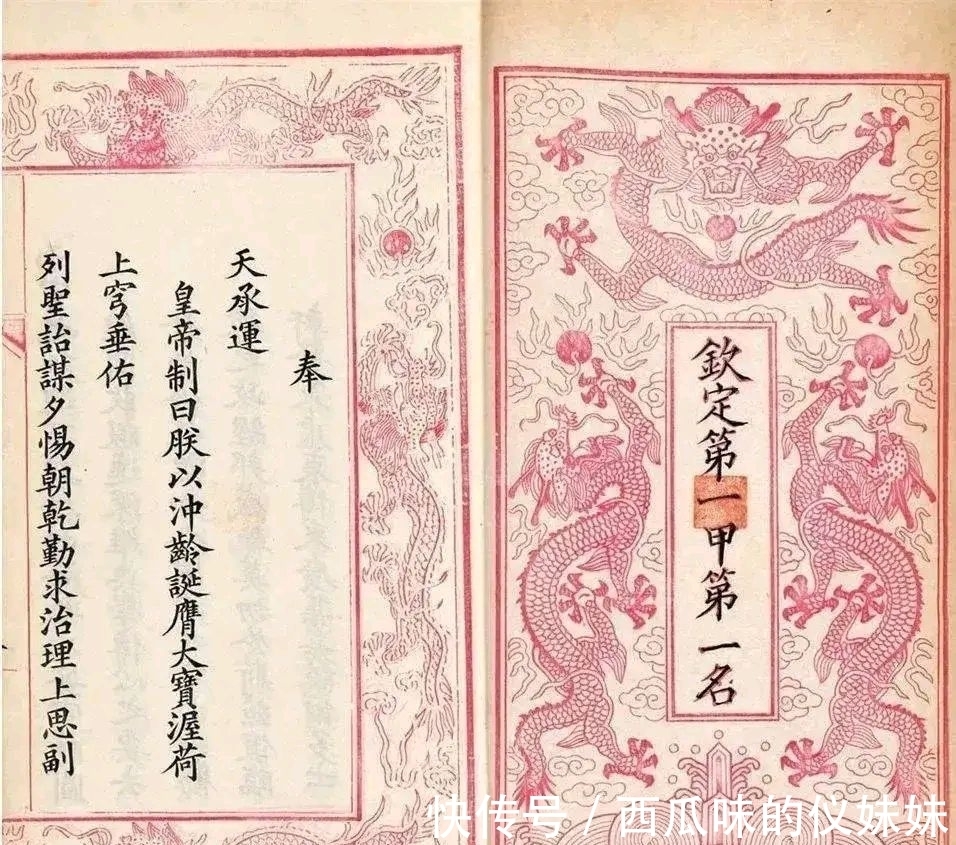 欽定第一甲第一名
奉
天承運
皇帝制曰朕以沖齡誕膺大寶渥荷
上穹垂佑
列聖詒謀夕惕朝乾勤求治理上思副
快传号 / 西瓜味的仪妹妹